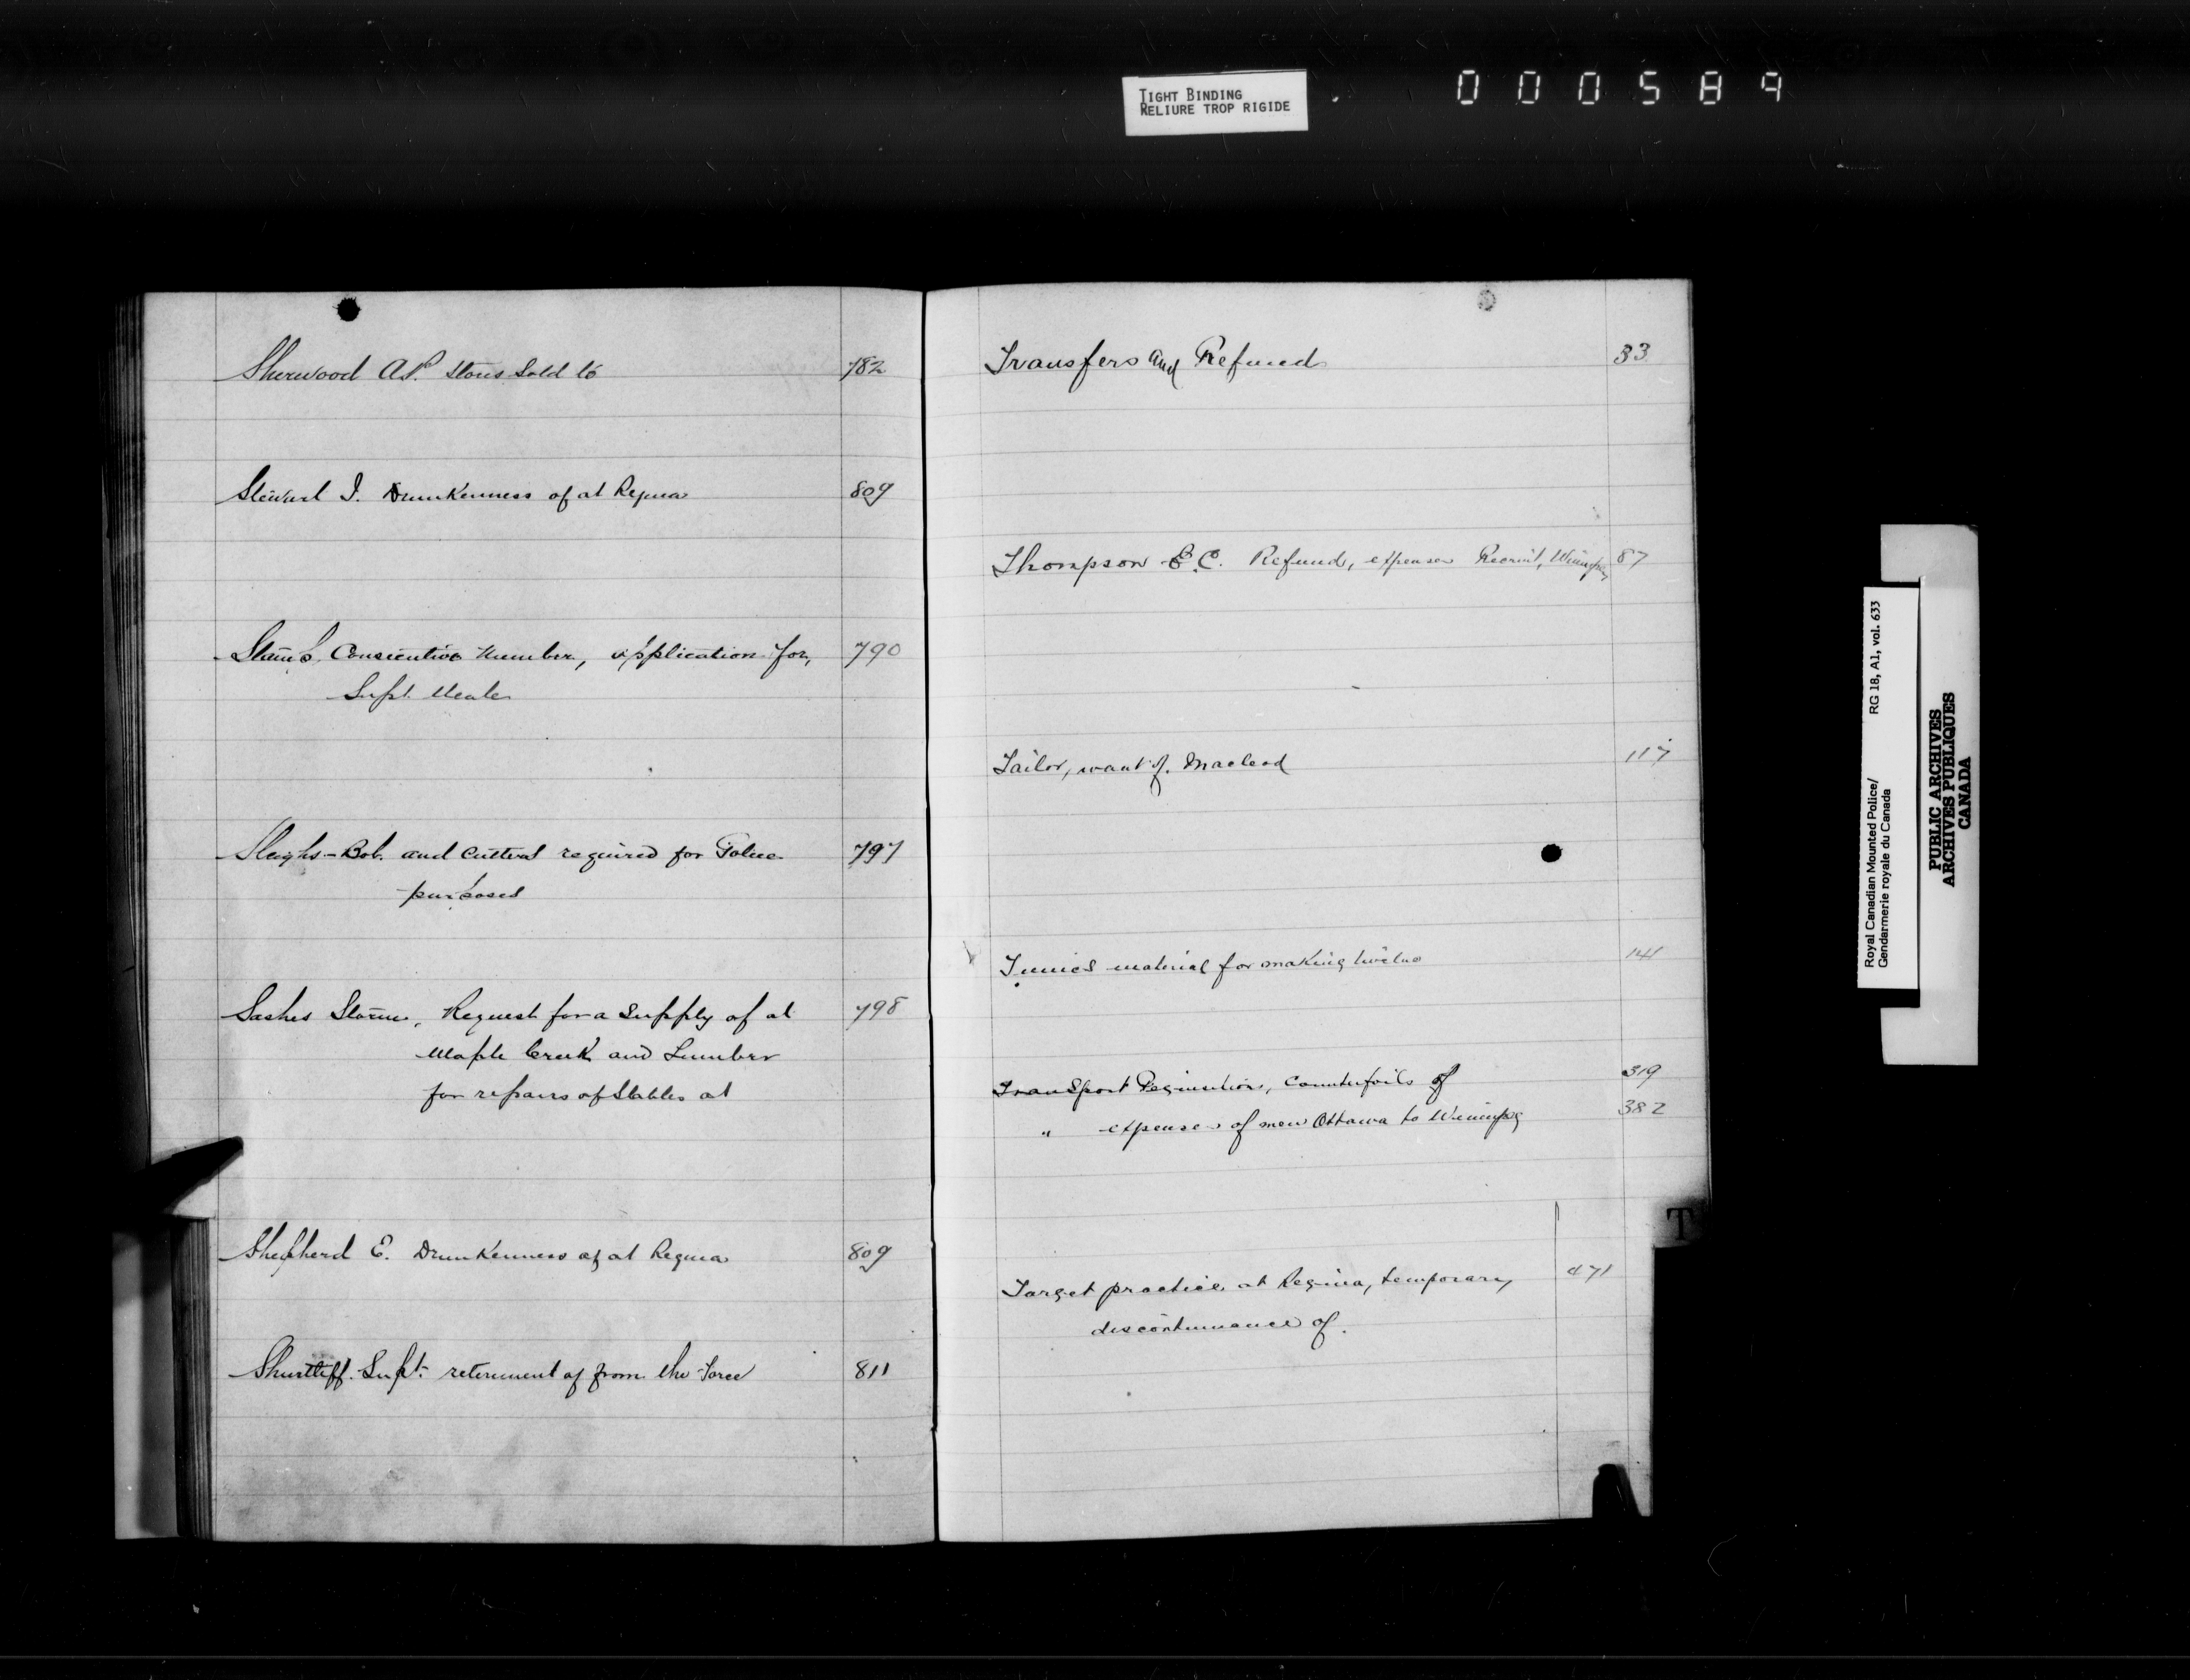 TIGHT BINDING
RELIURE TROP RIGIDE
000589
Sherwood A.P. Stores Sold to 782
Stewart J. Drunkenness of at Regina 809
Stamp, Consecutive Number, application for, 790
Supt. Neale
Sleighs - Bob. and Cutters required for Police 797
purposes
Sashes Storm, Request for a Supply of at 798
Maple Creek and Lumber
for repairs of Stables at
Shepherd E. Drunkenness of at Regina 809
Shurtliff. Supt. retirement of from the Force 811
Transfers and Refund 33
Thompson E.C. Refund, expenses Recruit, Winnipeg 87
Tailor, want of. Macleod 117
Tunics material for making twelve 141
Transport Requisition, Counterfoils of 319
" expenses of men Ottawa to Winnipeg 382
Target practice at Regina, temporary 471
discontinuance of.
T
Royal Canadian Mounted Police/ RG 18, A1, vol. 633
Gendarmerie royale du Canada
PUBLIC ARCHIVES
ARCHIVES PUBLIQUES
CANADA